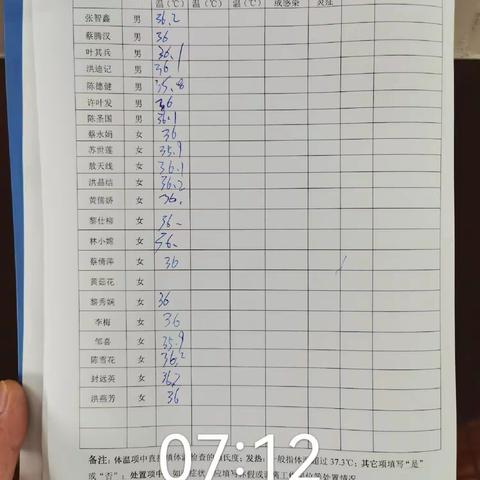 温（℃） 温（℃） 温（℃） 或感染 炎症
张智鑫 男 36.2
蔡腾汉 男 36
叶其兵 男 36.1
洪迪记 男 36
陈德健 男 35.8
许叶发 男 36
陈圣国 男 36.1
蔡永娟 女 36
苏世莲 女 35.9
敖天线 女 36.1
洪晶结 女 36.2
黄儒娇 女 36.
黎仕柳 女 36.
林小婉 女 36.
蔡倩萍 女 36
黄茹花 女
黎秀娴 女 36
李梅 女 36
邹喜 女 35.9
陈雪花 女 36.2
封远英 女 36.2
洪燕芳 女 36
07:12
备注：体温项中直接填体温检查的摄氏度；发热：一般指体温超过37.3℃；其它项填写“是”
或“否”；处置项中，如有症状，应填写休假或调离工作岗位等处置情况